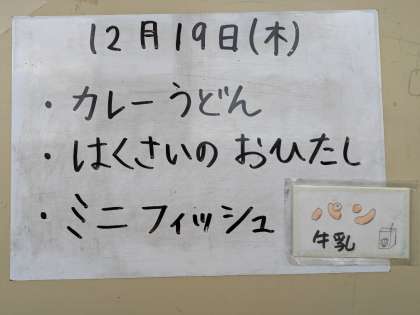 12月19日(木)
・カレーうどん
・はくさいのおひたし
・ミニフィッシュ
パン
牛乳